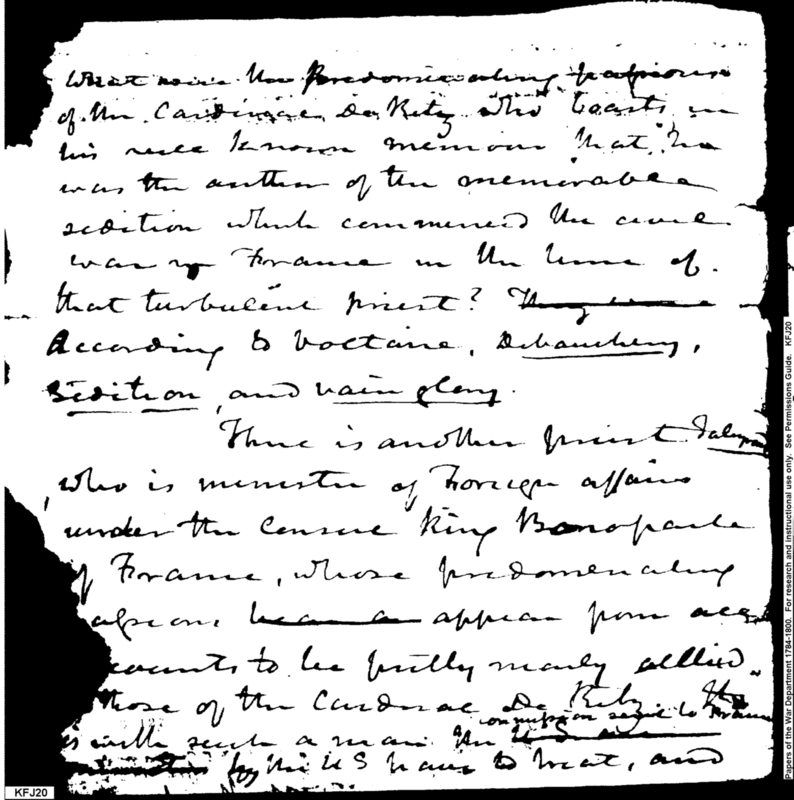 What were the Predominating passions
of the Cardinal De Retz who boasts in
his well known memoirs that, he
was the author of the memorable
sedition which commenced the civil
war in France in the time of
that turbulent priest? They were
According to Voltaire, Debauchery,
Sedition, and vain glory.
There is another priest
who is minister of Foreign affairs
under the Consul King Bonoparte
of France, whose predominating
passions appear from acc
counts to be pretty nearly allied
those of the Cardinal De Retz. It
commission sent to France
is with such a man the U S
by the U S have to treat, and
KFJ20
Papers of the War Department 1784-1800. For research and instructional use only. See Permissions Guide. KFJ20